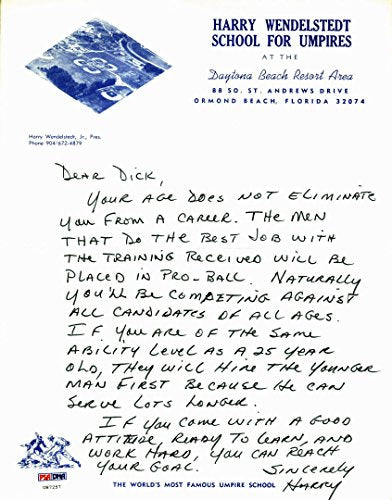 HARRY WENDELSTEDT
SCHOOL FOR UMPIRES
AT THE
Daytona Beach Resort Area
88 SO. ST. ANDREWS DRIVE
ORMOND BEACH, FLORIDA 32074
Harry Wendelstedt, Jr., Pres.
Phone 904/672-4879
DEAR DICK,
YOUR AGE DOES NOT ELIMINATE
YOU FROM A CAREER. THE MEN
THAT DO THE BEST JOB WITH
THE TRAINING RECEIVED WILL BE
PLACED IN PRO-BALL. NATURALLY
YOU'LL BE COMPETING AGAINST
ALL CANDIDATES OF ALL AGES.
IF YOU ARE OF THE SAME
ABILITY LEVEL AS A 25 YEAR
OLD, THEY WILL HIRE THE YOUNGER
MAN FIRST BECAUSE HE CAN
SERVE LOTS LONGER.
IF YOU COME WITH A GOOD
ATTITUDE, READY TO LEARN, AND
WORK HARD, YOU CAN REACH
YOUR GOAL. SINCERELY
HARRY
PSA DNA
THE WORLD'S MOST FAMOUS UMPIRE SCHOOL